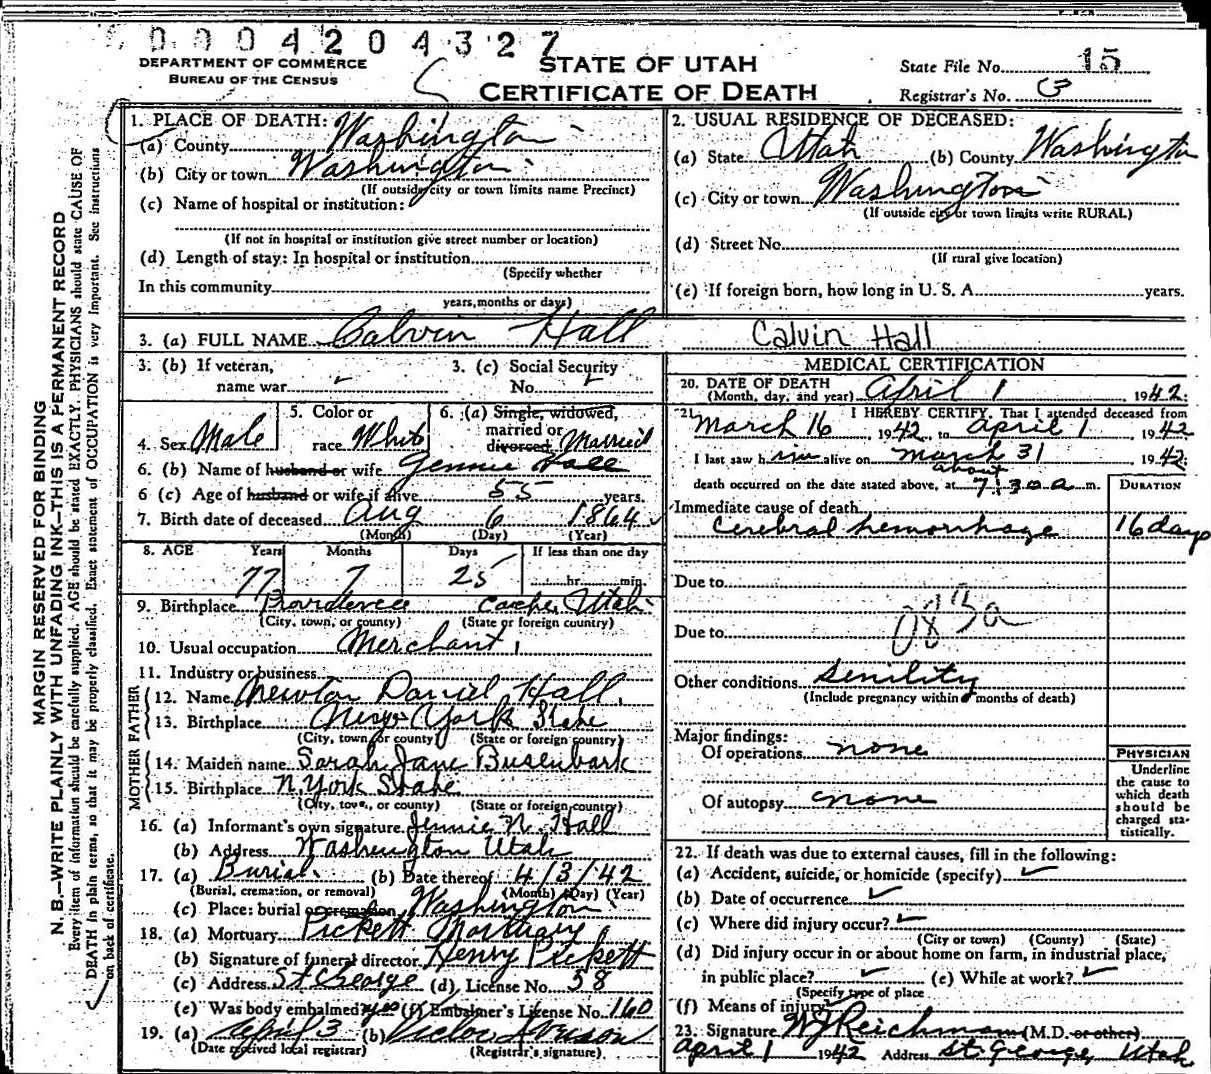 0004204327
DEPARTMENT OF COMMERCE
BUREAU OF THE CENSUS
STATE OF UTAH
CERTIFICATE OF DEATH
State File No. 15
Registrar's No. 3
MARGIN RESERVED FOR BINDING
N. B.—WRITE PLAINLY WITH UNFADING INK—THIS IS A PERMANENT RECORD
Every item of information should be carefully supplied. AGE should be stated EXACTLY. PHYSICIANS should state CAUSE OF
DEATH in plain terms, so that it may be properly classified. Exact statement of OCCUPATION is very important. See instructions
on back of certificate.
1. PLACE OF DEATH:
(a) County Washington
(b) City or town Washington
(If outside city or town limits name Precinct)
(c) Name of hospital or institution:
(If not in hospital or institution give street number or location)
(d) Length of stay: In hospital or institution
(Specify whether
In this community
years, months or days)
2. USUAL RESIDENCE OF DECEASED:
(a) State Utah (b) County Washington
(c) City or town Washington
(If outside city or town limits write RURAL)
(d) Street No.
(If rural give location)
(e) If foreign born, how long in U. S. A. years.
3. (a) FULL NAME Calvin Hall Calvin Hall
3. (b) If veteran,
name war
3. (c) Social Security
No.
4. Sex Male
5. Color or
race White
6. (a) Single, widowed,
married or
divorced Married
6. (b) Name of husband or wife Jennie Hall
6 (c) Age of husband or wife if alive 55 years.
7. Birth date of deceased Aug 6 1864
(Month) (Day) (Year)
8. AGE Years Months Days If less than one day
77 7 25 hr. min.
9. Birthplace Providence Cache, Utah
(City, town, or county) (State or foreign country)
10. Usual occupation Merchant
11. Industry or business
FATHER
12. Name Newton Daniel Hall
13. Birthplace New York State
(City, town or county) (State or foreign country)
MOTHER
14. Maiden name Sarah Jane Busenbark
15. Birthplace N. York State
(City, town, or county) (State or foreign country)
16. (a) Informant's own signature Jennie N. Hall
(b) Address Washington Utah
17. (a) Burial (b) Date thereof 4/3/42
(Burial, cremation, or removal) (Month) (Day) (Year)
(c) Place: burial or cremation Washington
18. (a) Mortuary Pickett Mortuary
(b) Signature of funeral director Henry Pickett
(c) Address St George (d) License No. 58
(e) Was body embalmed? yes (f) Embalmer's License No. 160
19. (a) April 3 (b) Victor Iverson
(Date received local registrar) (Registrar's signature)
MEDICAL CERTIFICATION
20. DATE OF DEATH
(Month, day, and year) April 1, 1942
21. I HEREBY CERTIFY, That I attended deceased from
March 16, 1942, to April 1 1942
I last saw him alive on March 31 1942
about
death occurred on the date stated above, at 7:30 a m.
DURATION
Immediate cause of death
Cerebral hemorrhage 16 days
Due to
083a
Due to
Other conditions Senility
(Include pregnancy within 3 months of death)
Major findings:
Of operations none
Of autopsy none
PHYSICIAN
Underline
the cause to
which death
should be
charged sta-
tistically.
22. If death was due to external causes, fill in the following:
(a) Accident, suicide, or homicide (specify)
(b) Date of occurrence
(c) Where did injury occur?
(City or town) (County) (State)
(d) Did injury occur in or about home on farm, in industrial place,
in public place? (e) While at work?
(Specify type of place
(f) Means of injury
23. Signature W J Reichmann (M.D. or other)
April 1 1942 Address St. George, Utah